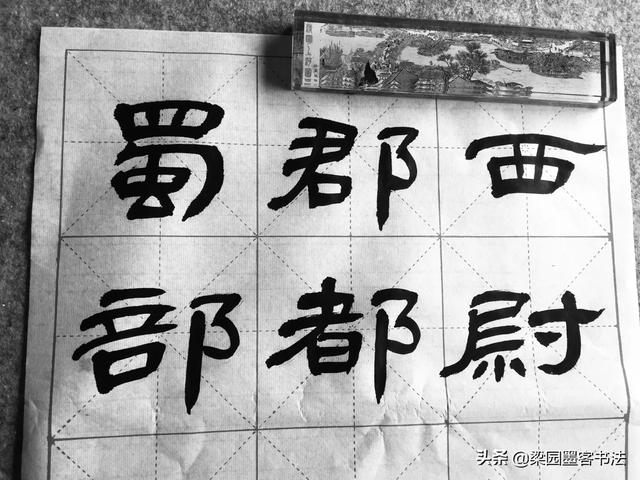 蜀郡西
部都尉
头条 @梁园墨客书法